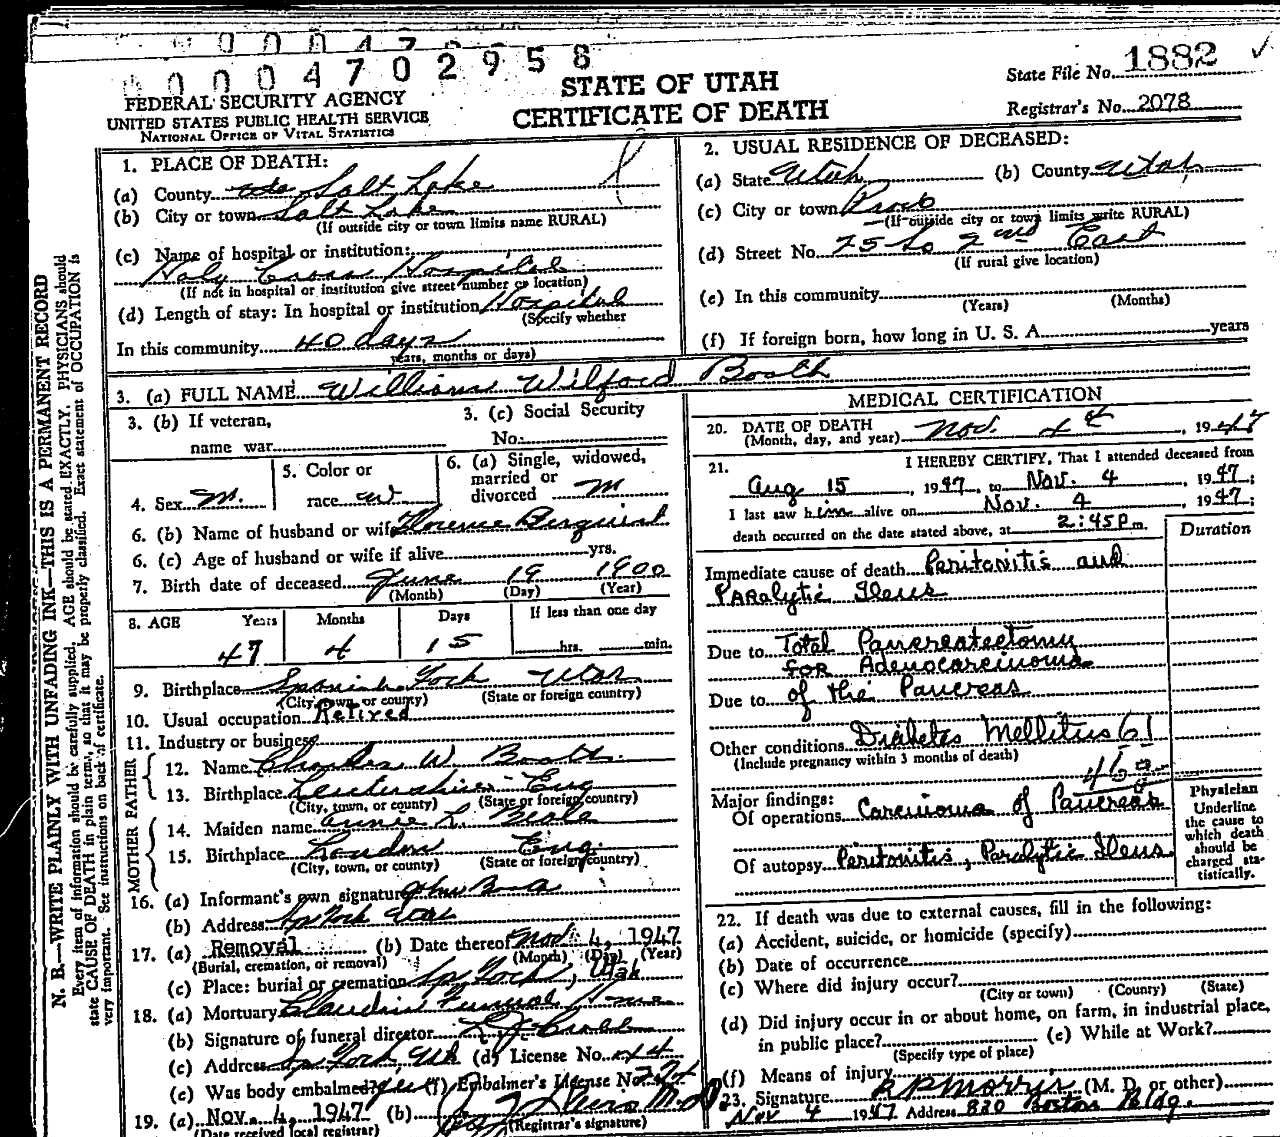 0004702958
STATE OF UTAH
CERTIFICATE OF DEATH
State File No. 1882
Registrar's No. 2078
FEDERAL SECURITY AGENCY
UNITED STATES PUBLIC HEALTH SERVICE
NATIONAL OFFICE OF VITAL STATISTICS
N. B.—WRITE PLAINLY WITH UNFADING INK—THIS IS A PERMANENT RECORD
Every item of information should be carefully supplied. AGE should be stated EXACTLY. PHYSICIANS should
state CAUSE OF DEATH in plain terms, so that it may be properly classified. Exact statement of OCCUPATION is
very important. See instructions on back of certificate.
1. PLACE OF DEATH:
(a) County Salt Lake
(b) City or town Salt Lake
(If outside city or town limits name RURAL)
(c) Name of hospital or institution:
Holy Cross Hospital
(If not in hospital or institution give street number or location)
(d) Length of stay: In hospital or institution Hospital
(Specify whether
In this community 40 days
years, months or days)
2. USUAL RESIDENCE OF DECEASED:
(a) State Utah (b) County Utah
(c) City or town Provo
(If outside city or town limits write RURAL)
(d) Street No. 75 So 2nd East
(If rural give location)
(e) In this community
(Years) (Months)
(f) If foreign born, how long in U. S. A. years
3. (a) FULL NAME William Wilford Booth
3. (b) If veteran,
name war
3. (c) Social Security
No.
4. Sex M.
5. Color or
race W
6. (a) Single, widowed,
married or
divorced M
6. (b) Name of husband or wife Florence Berquist
6. (c) Age of husband or wife if alive yrs.
7. Birth date of deceased June 19 1900
(Month) (Day) (Year)
8. AGE Years Months Days If less than one day
47 4 15 hrs. min.
9. Birthplace Spanish Fork Utah
(City, town, or county) (State or foreign country)
10. Usual occupation Retired
11. Industry or business
FATHER
12. Name Charles W. Booth
13. Birthplace Eng
(City, town, or county) (State or foreign country)
MOTHER
14. Maiden name Annie L. Beale
15. Birthplace London Eng.
(City, town, or county) (State or foreign country)
16. (a) Informant's own signature
(b) Address Sp Fork Utah
17. (a) Removal (b) Date thereof Nov 4, 1947
(Burial, cremation, or removal) (Month) (Day) (Year)
(c) Place: burial or cremation Sp Fork, Utah
18. (a) Mortuary Claudin Funeral Home
(b) Signature of funeral director
(c) Address Sp Fork, Utah (d) License No. 44
(e) Was body embalmed? yes (f) Embalmer's License No. 274
19. (a) Nov. 4, 1947 (b)
(Date received local registrar) (Registrar's signature)
MEDICAL CERTIFICATION
20. DATE OF DEATH
(Month, day, and year) Nov. 4th, 1947
21. I HEREBY CERTIFY, That I attended deceased from
Aug 15, 1947, to Nov. 4, 1947;
I last saw him alive on Nov. 4, 1947;
death occurred on the date stated above, at 2:45 P m.
Duration
Immediate cause of death Peritonitis and
Paralytic Ileus
Due to Total Pancreatectomy
for Adenocarcinoma
Due to of the Pancreas
Other conditions Diabetes Mellitus 61
(Include pregnancy within 3 months of death)
46g
Major findings:
Of operations Carcinoma of Pancreas
Of autopsy Peritonitis, Paralytic Ileus
Physician
Underline
the cause to
which death
should be
charged sta-
tistically.
22. If death was due to external causes, fill in the following:
(a) Accident, suicide, or homicide (specify)
(b) Date of occurrence
(c) Where did injury occur?
(City or town) (County) (State)
(d) Did injury occur in or about home, on farm, in industrial place,
in public place? (e) While at Work?
(Specify type of place)
(f) Means of injury
23. Signature R P Morris (M. D. or other)
Nov 4 1947 Address 820 Boston Bldg.